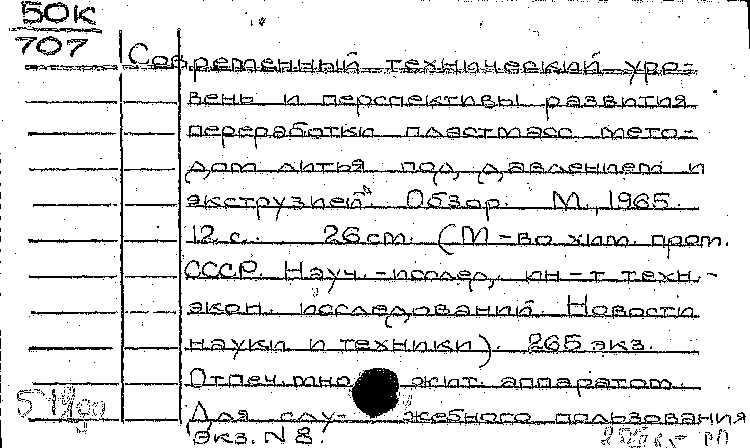 50К
707
Современный технический уро-
вень и перспективы развития
переработки пластмасс мето-
дом литья под давлением и
экструзией. Обзор. М., 1965.
12 с. 26 см. (М-во хим. пром.
СССР. Науч.-исслед. ин-т техн.-
экон. исследований. Новости
науки и техники). 265 экз.
Отпеч. множит. аппаратом.
Для служебного пользования
Экз. N 8.